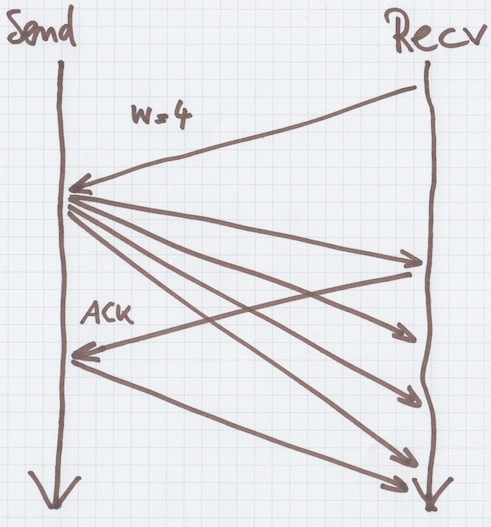 Send
Recv
W=4
ACK